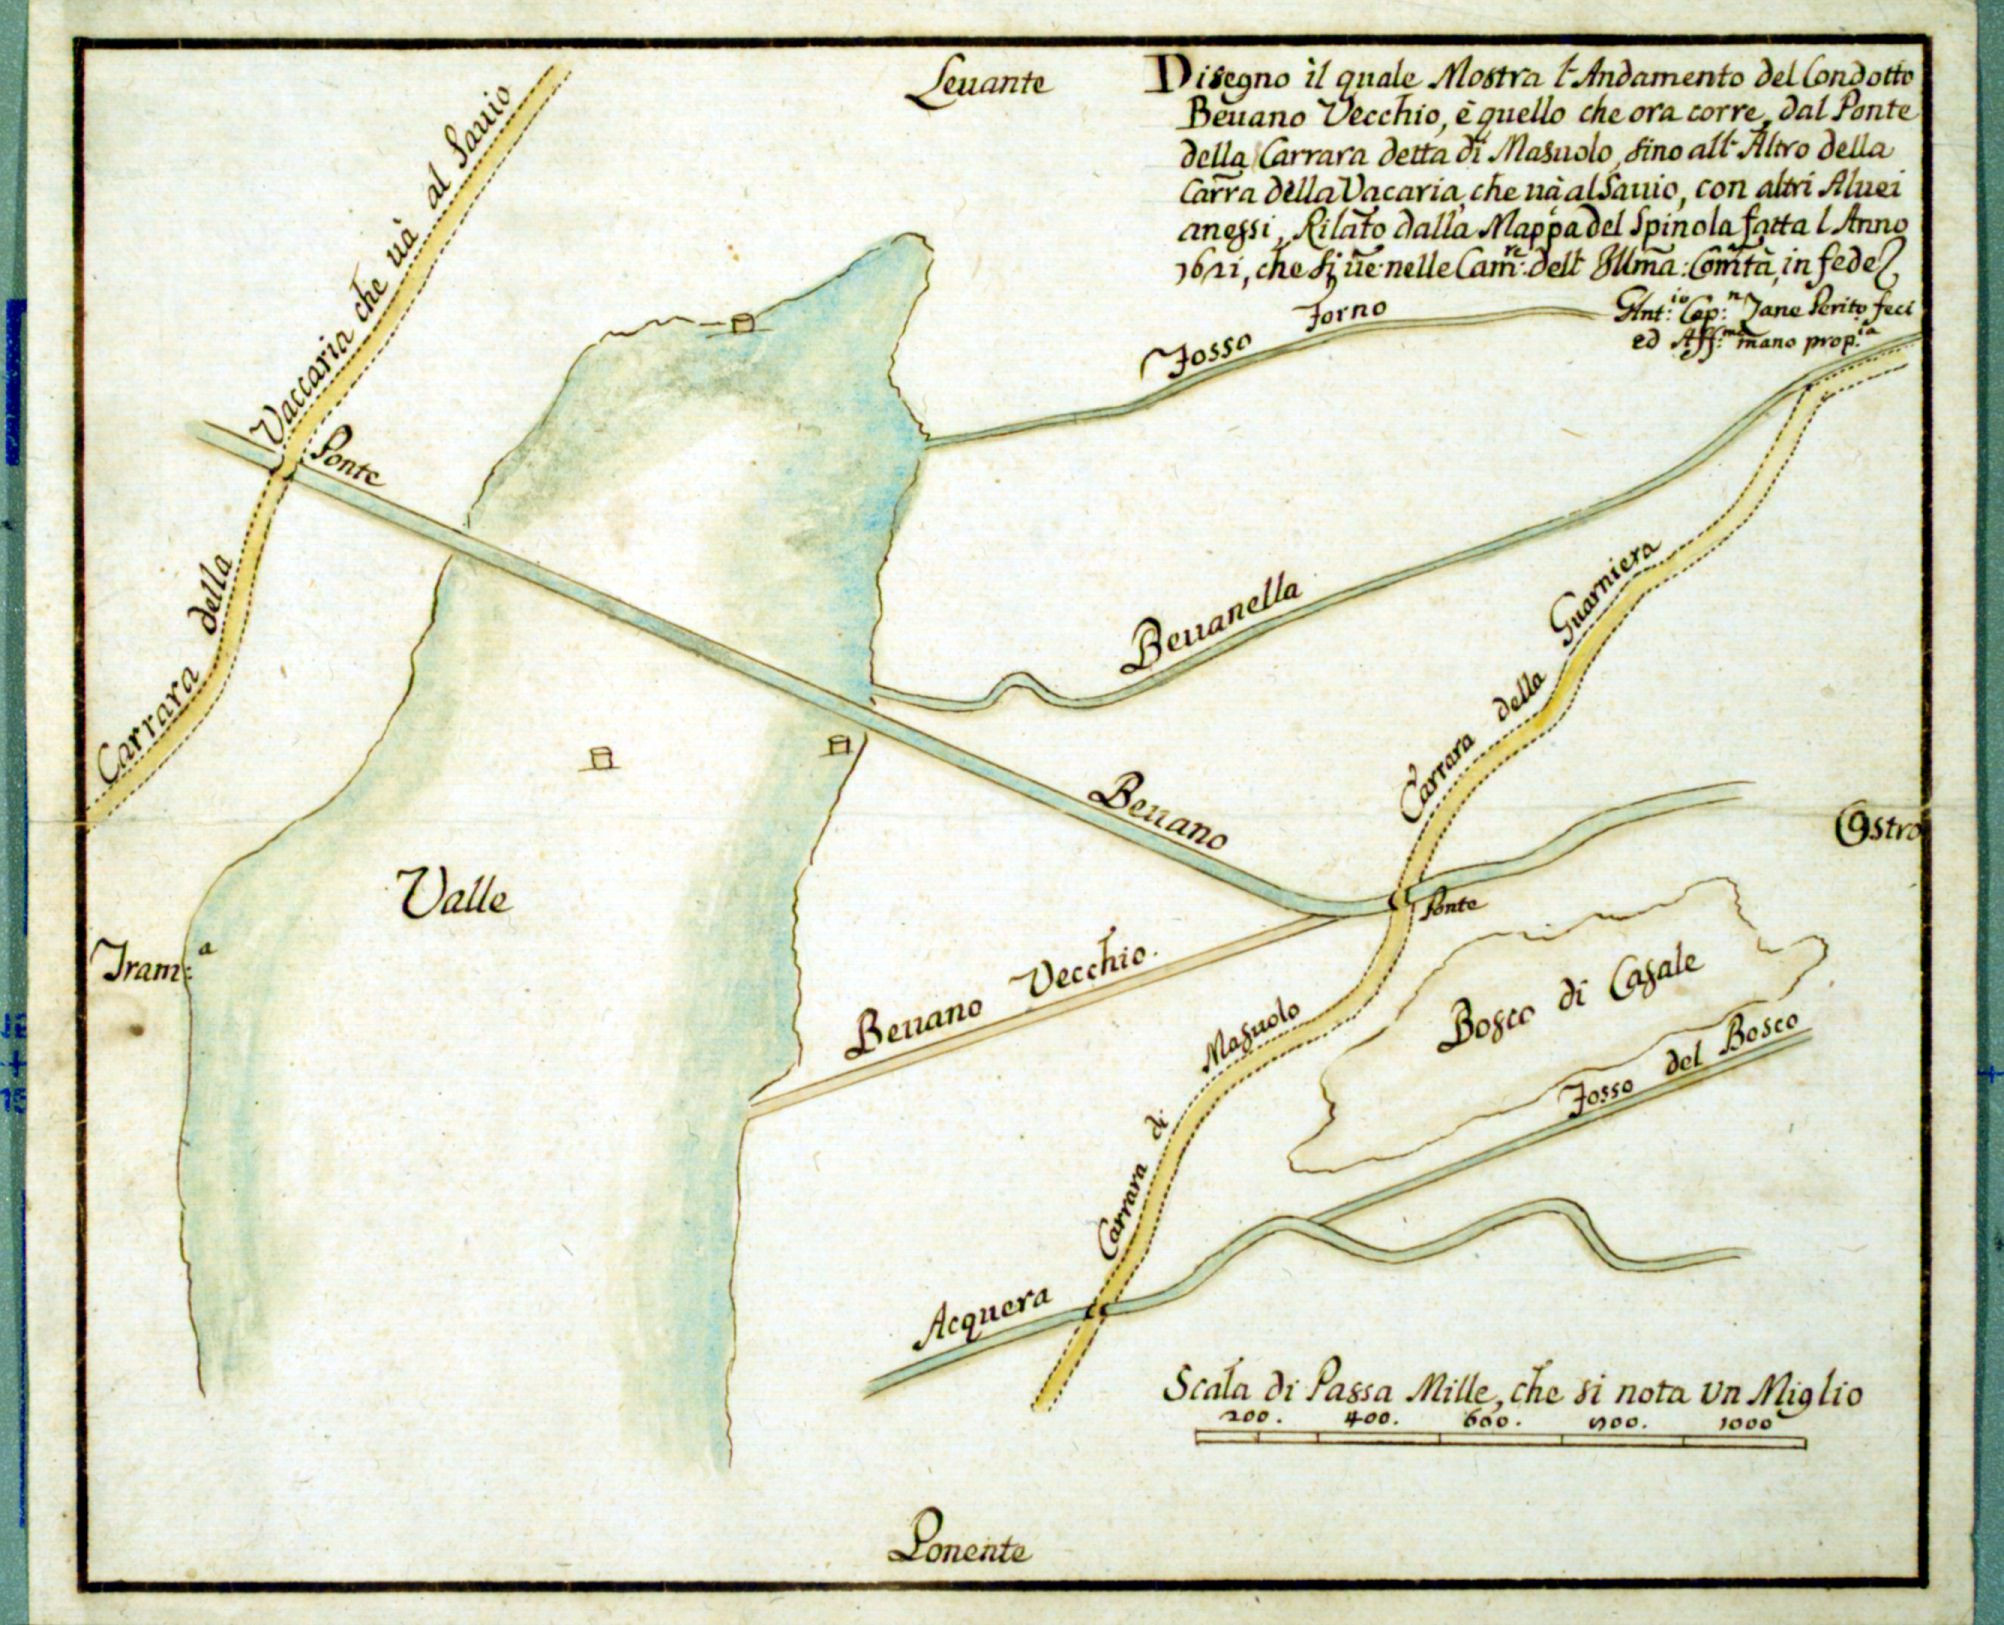 Leuante
Disegno il quale Mostra l'Andamento del Condotto
Beuano Vecchio, è quello che ora corre, dal Ponte
della Carrara detta di Masuolo, sino all'Altro della
Carrã della Vacaria, che uà al Sauio, con altri Aluei
anessi, Rilato dalla Mappa del Spinola fatta l Anno
1621, che si ũe: nelle Cam:re dell' Illma: Comtà, in fede
Ant:io Cap:n Fane Perito feci
ed Aff:mo mano prop:ia
Carrara della Vaccaria che uà al Sauio
Ponte
Fosso Torno
Beuanella
Carrara della Guarniera
Beuano
Ostro
Ponte
Valle
Tram:a
Beuano Vecchio.
Bosco di Casale
Carrara di Masuolo
Fosso del Bosco
Acquera
Scala di Passa Mille, che si nota Vn Miglio
200. 400. 600. 1000
Ponente